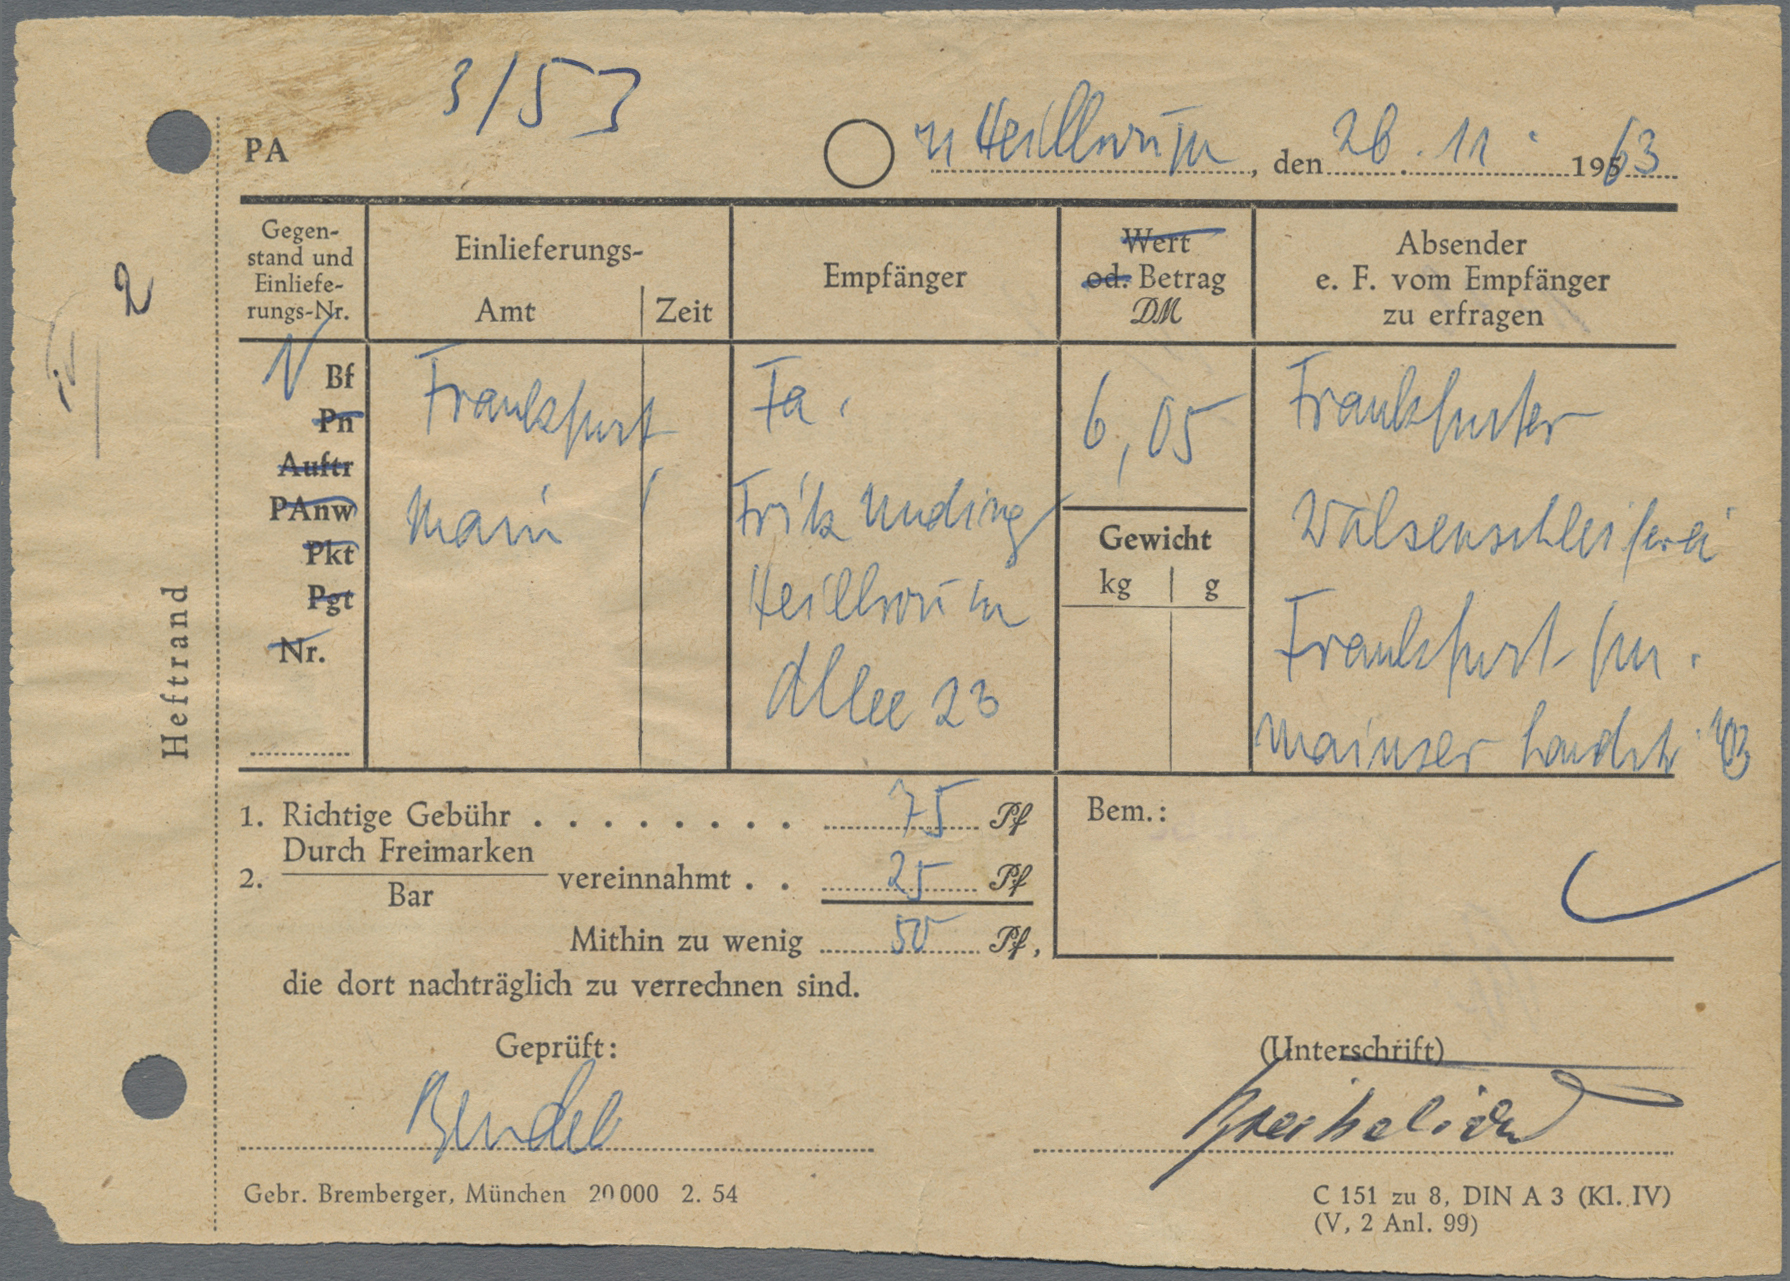 3/53
PA
Heilbronn, den 26. 11. 1963
Gegen-
stand und
Einliefe-
rungs-Nr.
Einlieferungs-
Amt
Zeit
Empfänger
Wert
od. Betrag
DM
Absender
e. F. vom Empfänger
zu erfragen
2
Bf
Pn
Auftr
PAnw
Pkt
Pgt
Nr.
Frankfurt
Main
Fa.
Fritz Unding
Heilbronn
Allee 23
6,05
Gewicht
kg
g
Frankfurter
Walsenschleiferei
Frankfurt /M.
Mainser Landstr.
Heftrand
1. Richtige Gebühr . . . . . . . . 75 Pf
2. Durch Freimarken
Bar
vereinnahmt . . 25 Pf
Mithin zu wenig 50 Pf,
die dort nachträglich zu verrechnen sind.
Bem.:
Geprüft:
(Unterschrift)
Gebr. Bremberger, München 20 000 2. 54
C 151 zu 8, DIN A 3 (Kl. IV)
(V, 2 Anl. 99)